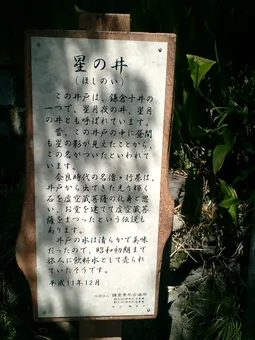 星の井
（ほしのい）
この井戸は、鎌倉十井の
一つで、星月夜の井、星月
の井とも呼ばれています。
昔、この井戸の中に昼間
も星の影が見えたことから、
この名がついたといわれて
います。
奈良時代の名僧・行基は、
井戸から出てきた光り輝く
石を虚空蔵菩薩の化身と思
い、お堂を建てて虚空蔵菩
薩をまつったという伝説も
あります。
井戸の水は清らかで美味
だったので、昭和初期まで
旅人に飲料水として売られ
ていたそうです。
平成11年12月
鎌倉青年会議所